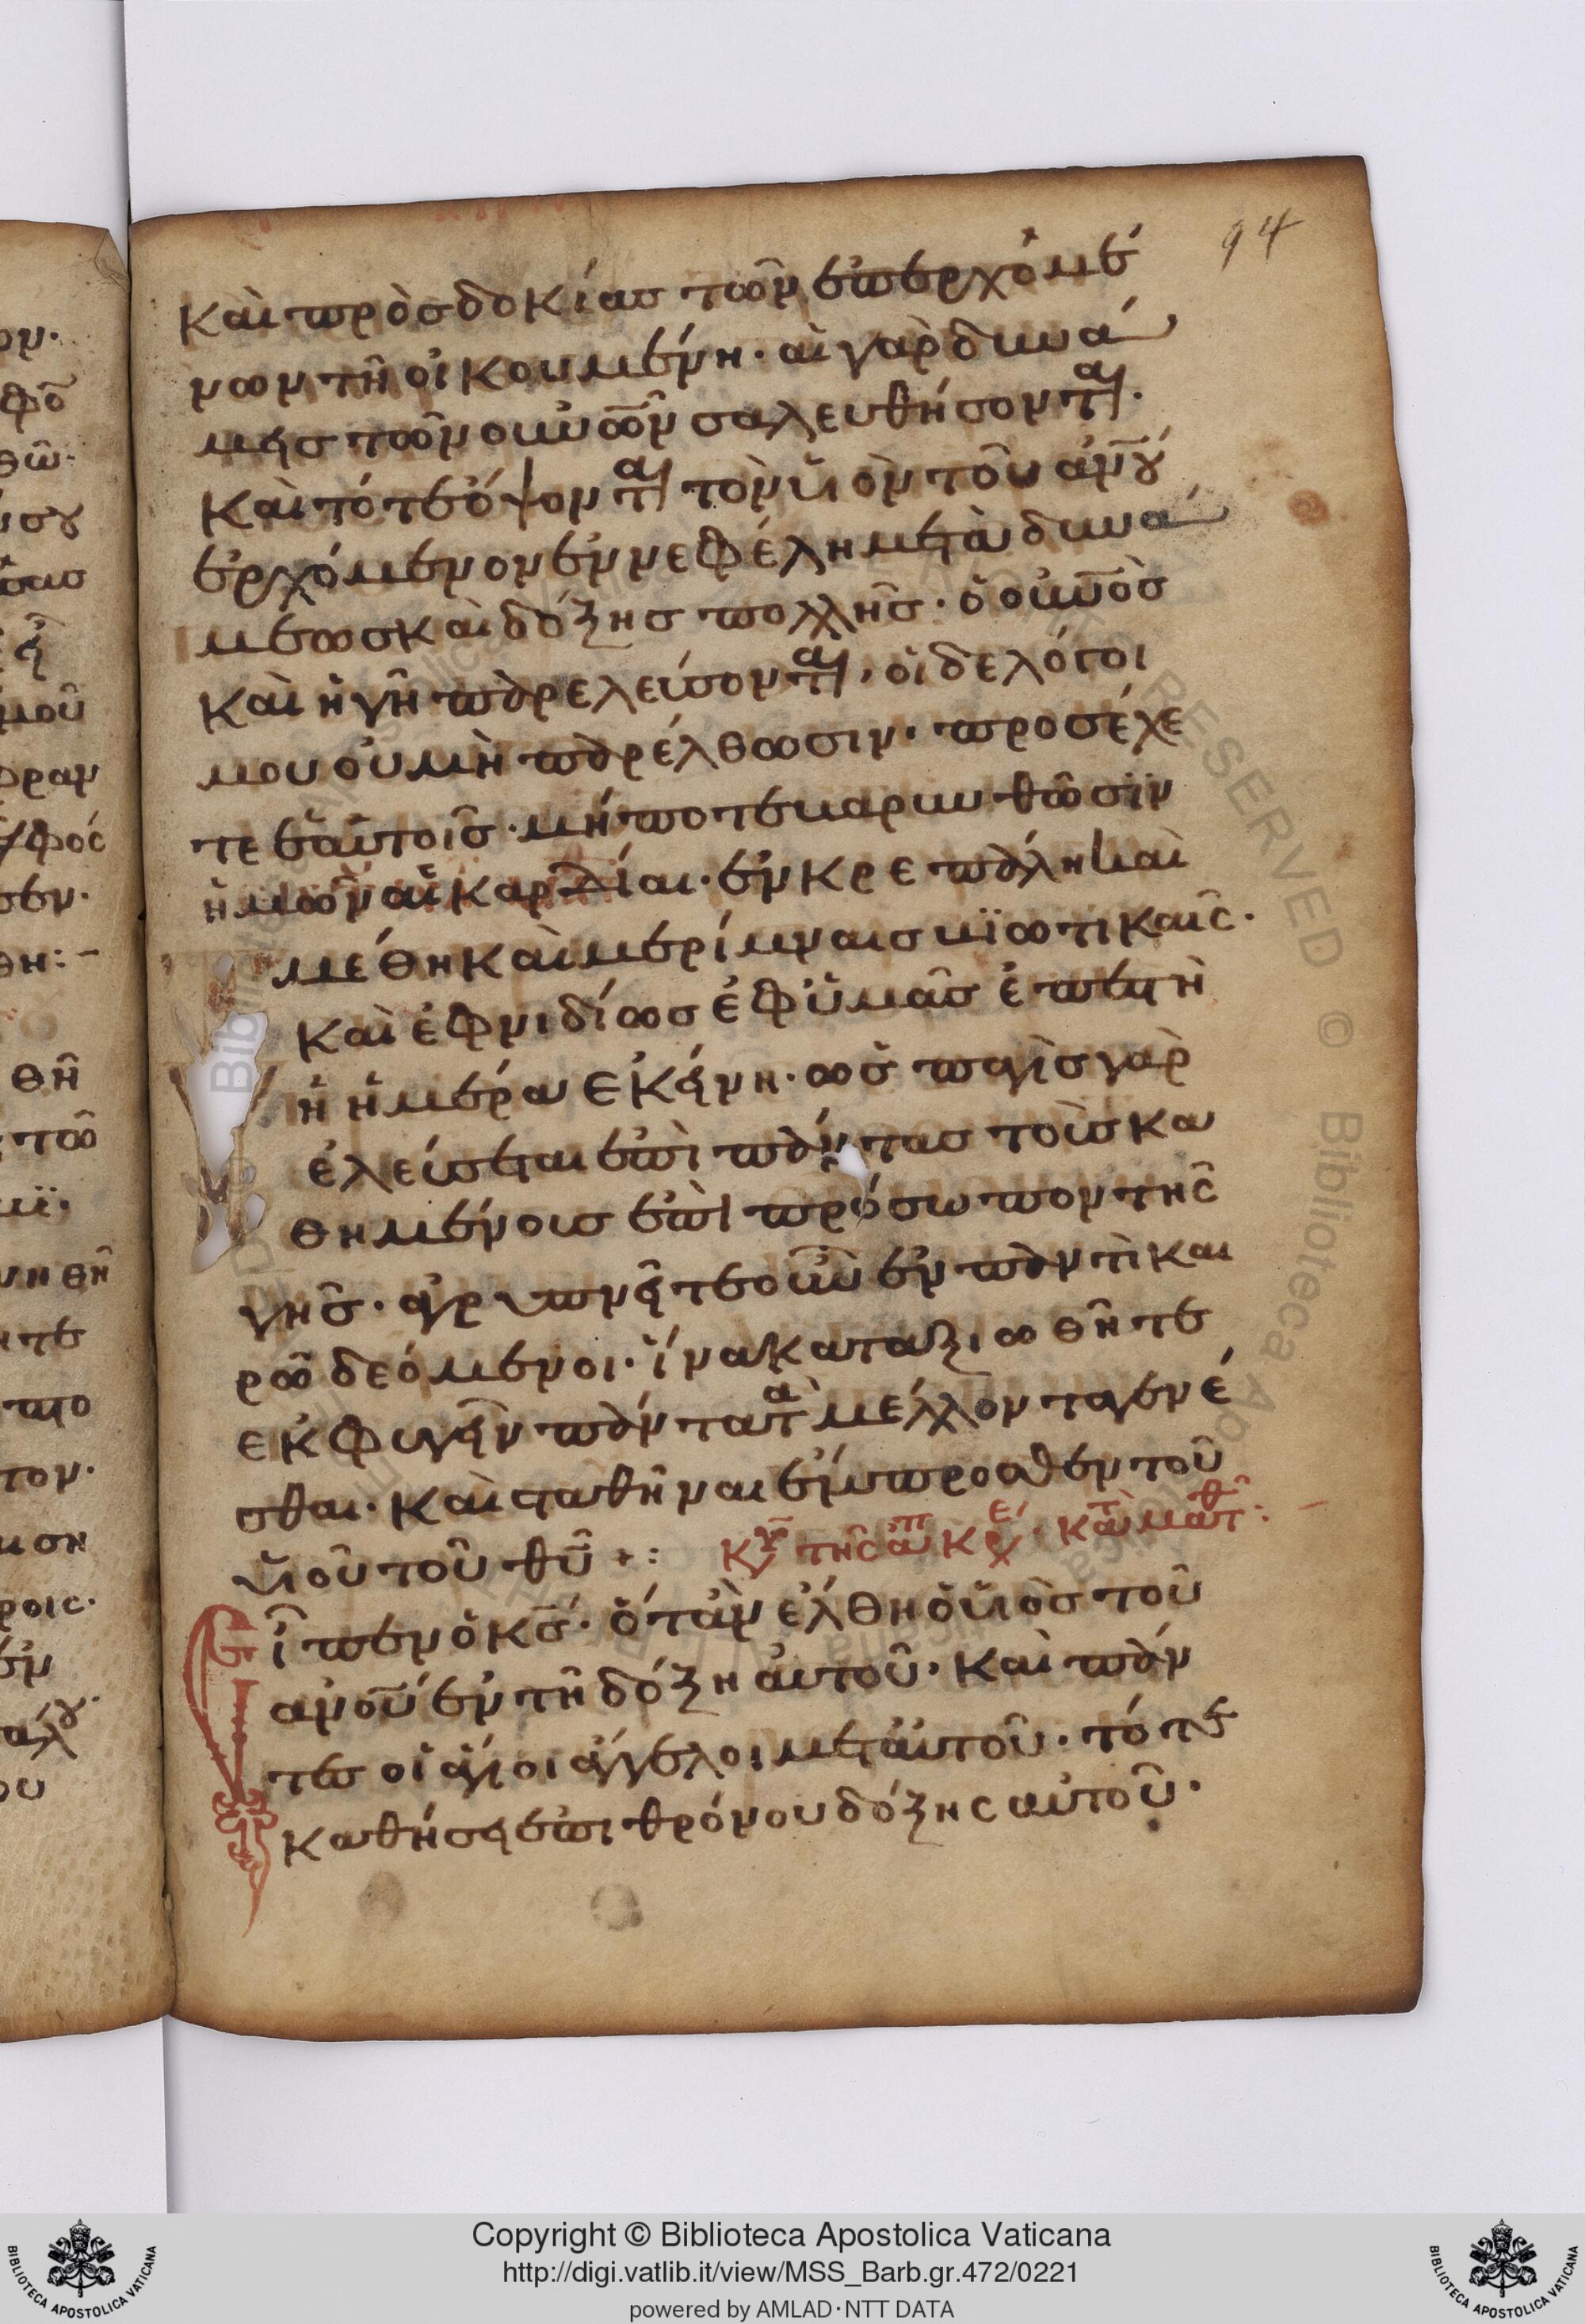 94
καὶ πρὸσδοκίασ τῶν ἐπερχομέ
νων τῆ οἰκουμένη· αἱ γὰρ δυνά
μεισ τῶν οὐν̅ω̅ν σαλευθήσονται·
καὶ τότε ὄψονται τὸν υἱὸν τοῦ ἀν̅ου
ἐρχόμενον ἐν νεφέλη μετὰ δυνά
μεωσ καὶ δόξησ πολλῆσ· ὁ οὐν̅οσ
καὶ ἡ γῆ παρελεύσονται, οἱ δε λόγοι
μου οὐ μὴ παρέλθωσιν· προσέχε
τε ἑαυτοῖσ· μήποτε βαρυνθῶσϊν
ἡμῶν αἱ καρδίαι· ἐν κρεπάλη καὶ
μέθη καὶ μερίμναισ βϊωτικαῖς·
καὶ ἐφνιδίωσ ἐφ ὑμᾶσ ἐπιστῆ
ἡ ἡμέρα ἐκείνη· ὡσ παγὶσ γὰρ
ἐλεύσεται ἐπὶ πάντασ τοὺσ κα
θημένουσ ἐπὶ πρόσωπον τῆς
γῆσ· ἀγρυπνεῖτε οὖν ἐν παντὶ και
ρῶ δεόμενοι· ἵνα καταξιωθῆτε
ἐκφυγεῖν πάντα τὰ μέλλοντα γενέ
σθαι· καὶ σταθῆναι ἔμπροσθεν τοῦ
υἱοῦ τοῦ θυ̅ +:
Κυρ τῆς ἀπ κρε· κατὰ ματθ:
Εἶπεν ὁ κσ̅· ὅταν ἔλθη ὁ υἱὸσ τοῦ
ἀνου̅ ἐν τῆ δόξη αὐτοῦ· καὶ πάν
τεσ οἱ ἅγιοι ἄγγελοι μετ αὐτοῦ· τότε
καθήσει ἐπι θρόνου δόξης αὐτοῦ·
Copyright © Biblioteca Apostolica Vaticana
http://digi.vatlib.it/view/MSS_Barb.gr.472/0221
powered by AMLAD·NTT DATA